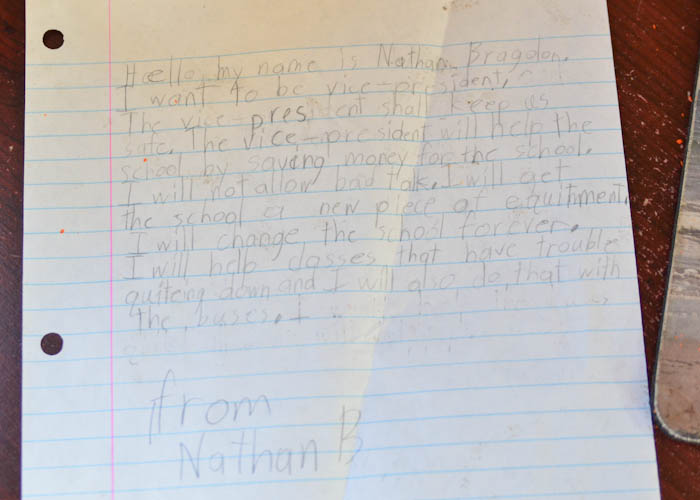 Hello, my name is Nathan Bragdon.
I want to be vice-president.
The vice-president shall keep us
safe. The vice-president will help the
school by saving money for the school.
I will not allow bad talk. I will get
the school a new piece of equitment.
I will change the school forever.
I will help classes that have trouble
quiteing down and I will also do that with
the buses. I
from
Nathan B